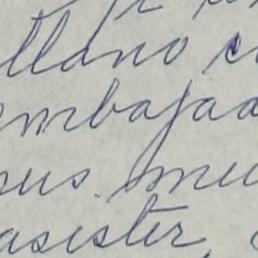 llano c
embajad
sus mu
asistir,